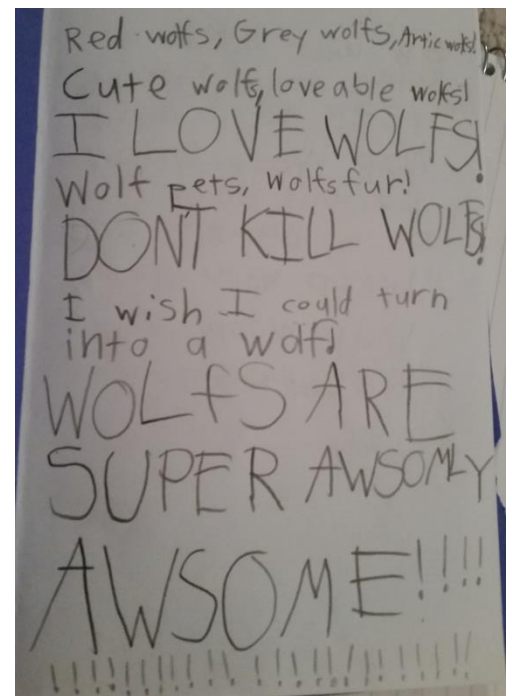 Red wolfs, Grey wolfs, Artic wolfs!
Cute wolfs, loveable wolfs!
I LOVE WOLFS!
Wolf pets, Wolfs fur!
DONT KILL WOLFS!
I wish I could turn
into a wolf!
WOLfS ARE
SUPER AWSOMLY
AWSOME!!!!
!!!!!!!!!!!!!!!!!!!!!!